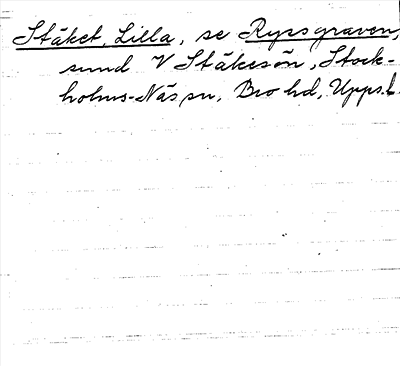 Stäket, Lilla, se Rypsgraven,
sund V Stäketsön, Stock-
holms-Näs sn, Bro hd, Upps. l.